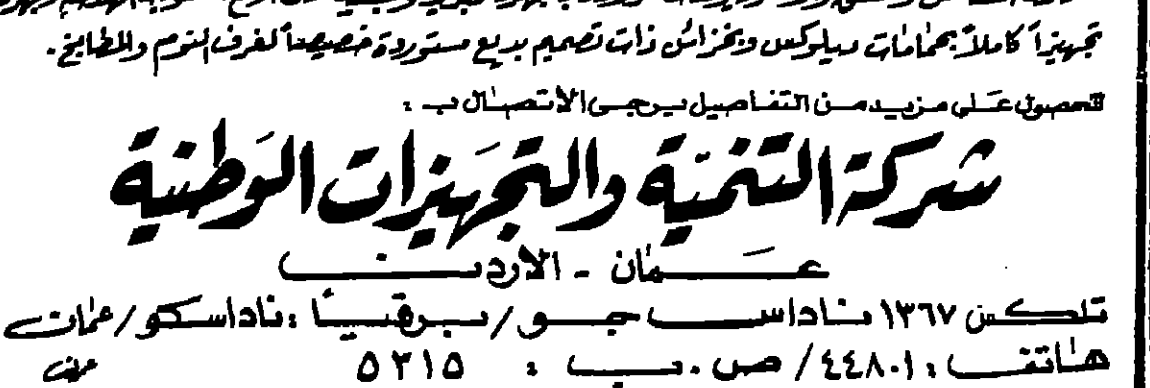 تجهيزاً كاملاً بحمامات ديلوكس وبخزائن ذات تصميم بديع مستوردة خصيصاً لغرف النوم والمطابخ.
للحصول على مزيد من التفاصيل يرجى الاتصال ب :
شركة التنمية والتجهيزات الوطنية
عمان - الاردن
تلكس ١٣٦٧ ناداسـ جو / برقياً : ناداسكو / عمان
هاتف : ٤٤٨٠١ / ص . ب : ٥٣١٥